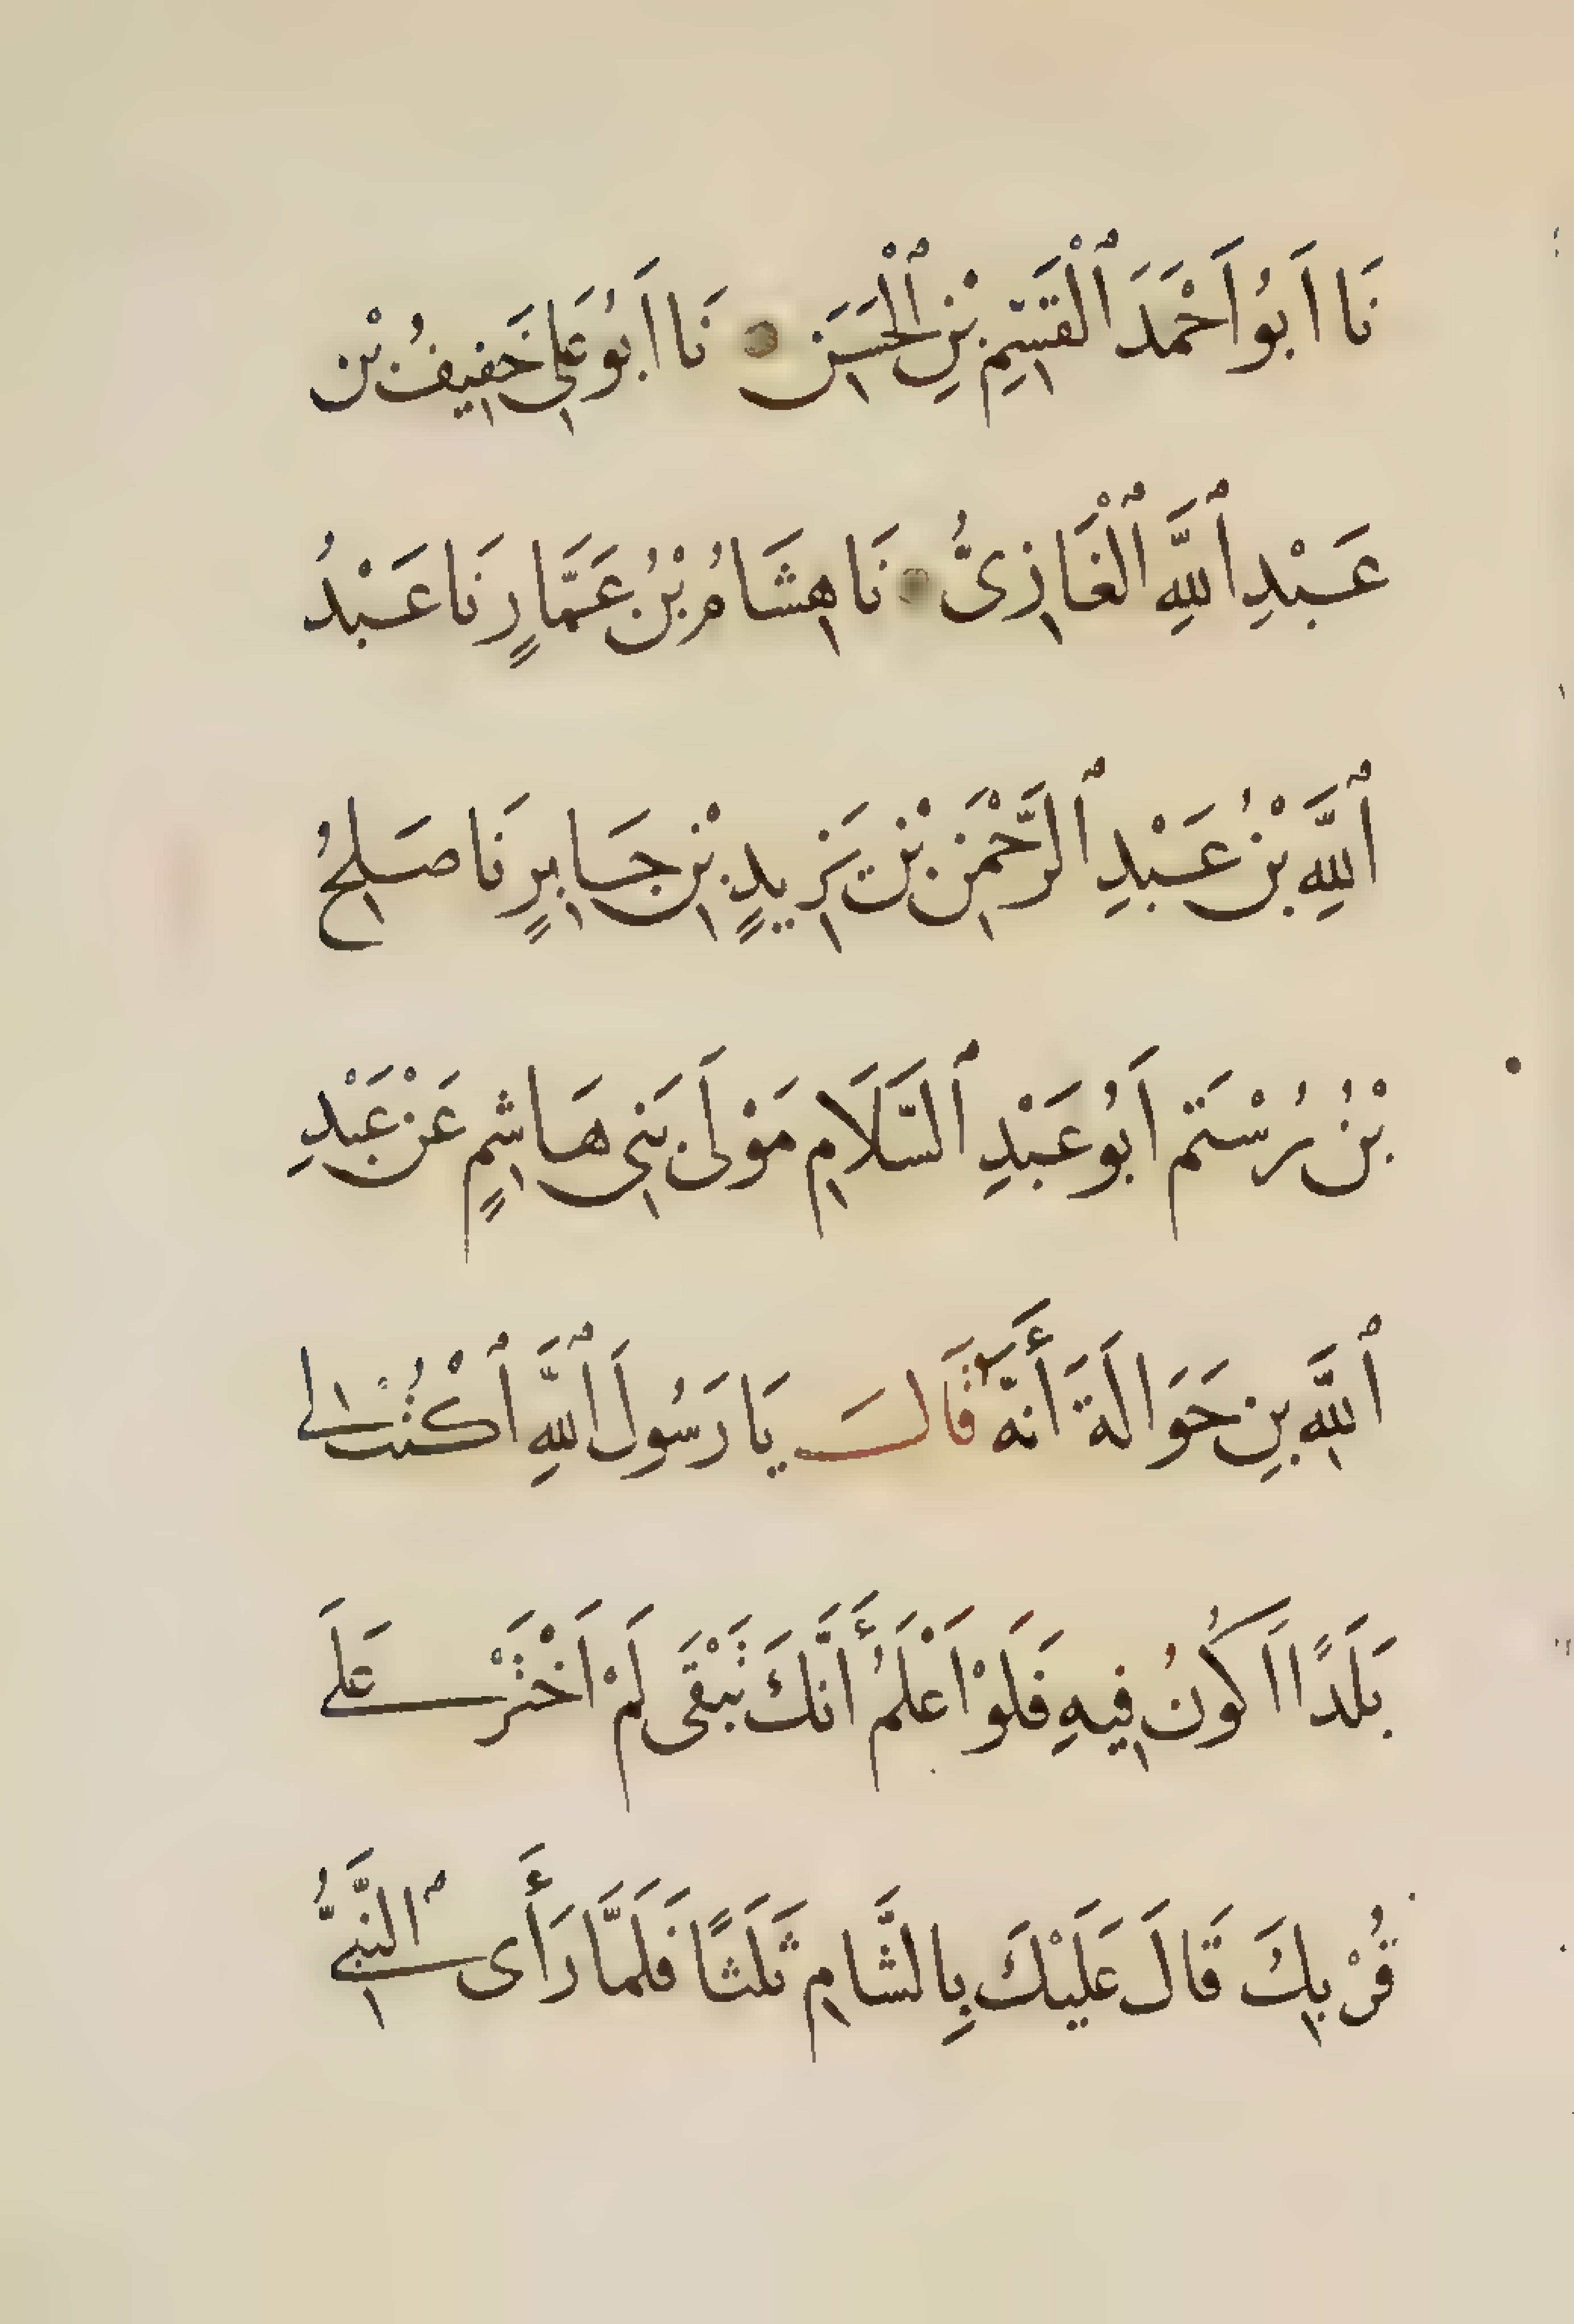 نَا اَبُو اَحْمَدَ ٱلْقَسِمِ بْنِ ٱلْحَسَنِ نَا اَبُو عَلِي خَفِيفُ بْن
عَبْدِ ٱللَّهِ ٱلْغَازِىُّ نَا هِشَامُ بْنُ عَمَّارٍ نَا عَبْدُ
ٱللَّهِ بْنُ عَبْدِ ٱلرَّحْمَنِ بْن يَزِيدٍ بْنِ جَابِرٍ نَا صَلِحُ
بْنُ رُسْتَم اَبُو عَبْدِ ٱلسَّلَامِ مَوْلَى بَنِي هَاشِمٍ عَنْ عَبْدِ
ٱللَّهِ بنِ حَوَالَةَ أَنَّهُ قَالَ يَا رَسُولَ ٱللَّهِ ٱكْتُبْ لِي
بَلَدًا اَكُونُ فِيهِ فَلَوْ اَعْلَمُ أَنَّكَ تَبْقَى لَمْ اَخْتَرْ عَلَى
قُرْبِكَ قَالَ عَلَيْكَ بِالشَّامِ ثَلَثًا فَلَمَّا رَأَى ٱلنَّبِيُّ